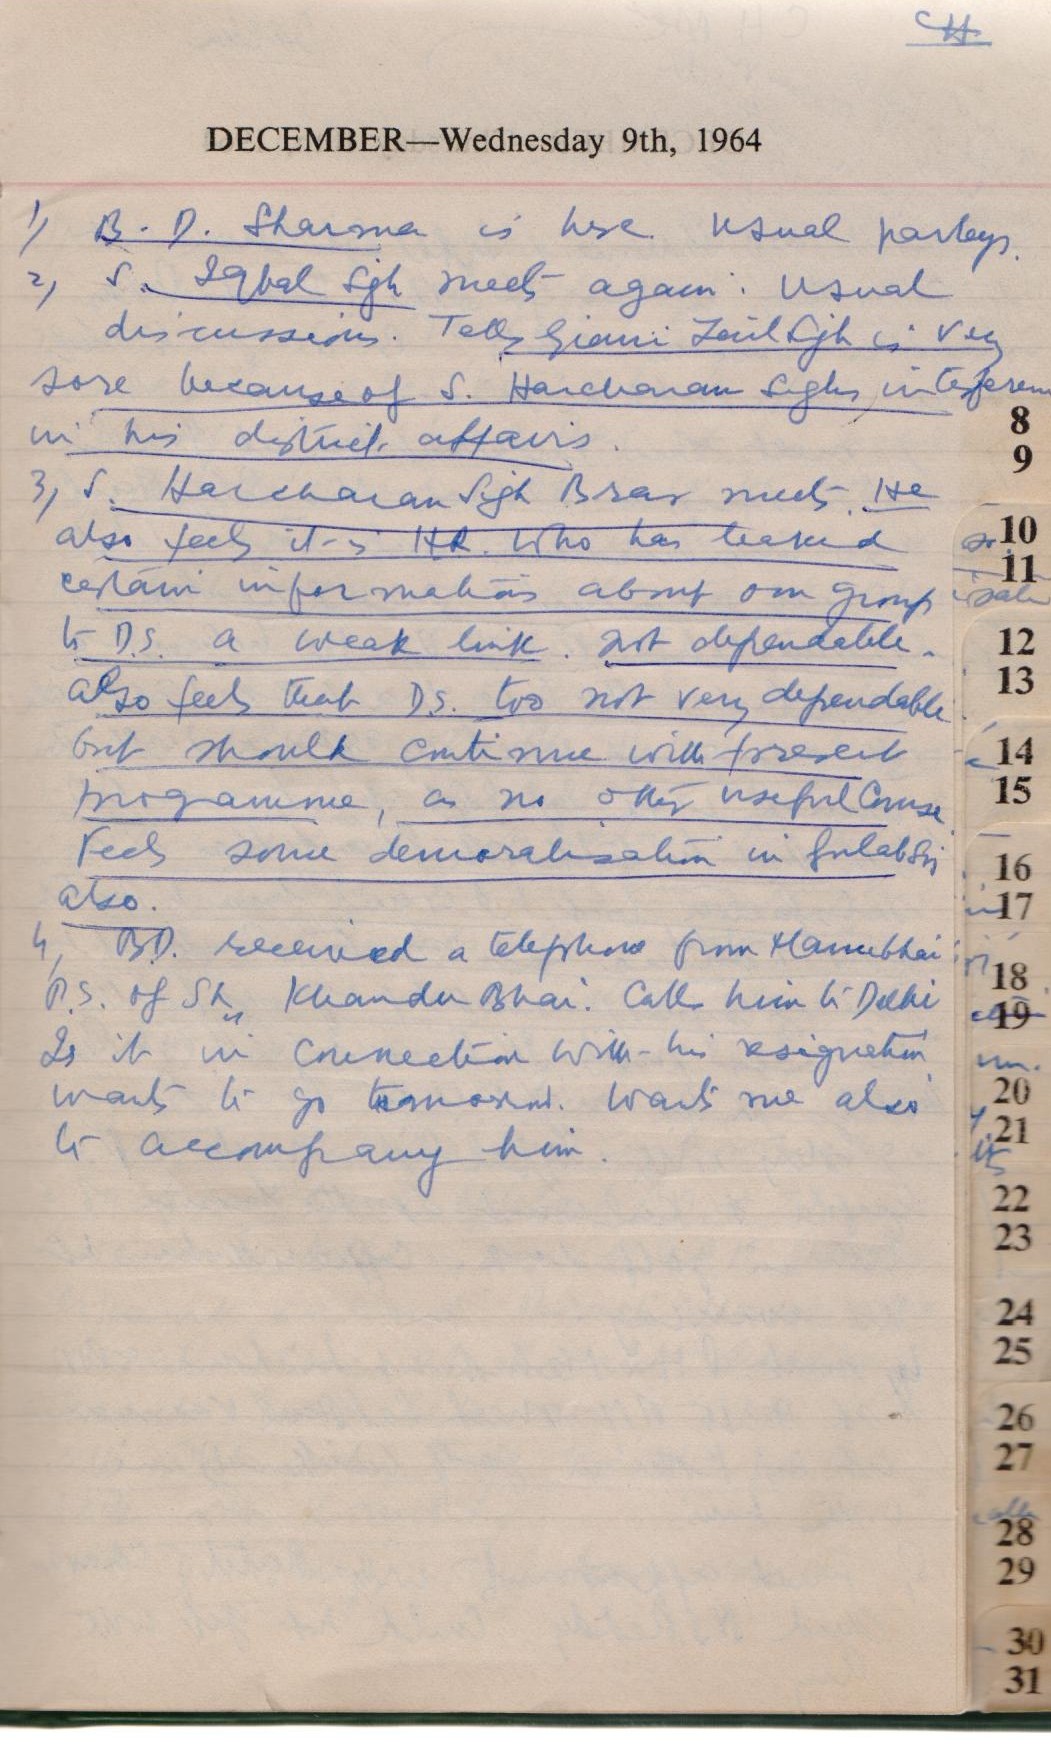 CH
DECEMBER—Wednesday 9th, 1964
1) B. D. Sharma is here. Usual parleys.
2) S. Iqbal Sgh meets again. Usual
discussions. Tells Giani Zail Sgh is very
sore because of S. Harcharan Sighs interferen
in his district affairs.
3) S. Harcharan Sigh Brar meets. He
also feels it is HR. who has leaked
certain informations about our group
to D.S. a weak link. not dependable.
also feels that DS. too not very dependable
but should continue with present
programme, as no other useful Course.
Feels some demoralisation in Gulab Sig
also.
4) BD. received a telephone from Manubhai
P.S. of Sh. Khandu Bhai. Calls him to Delhi
Is it in Connection with his resignation
wants to go tomorrow. Wants me also
to accompany him.
8
9
10
11
12
13
14
15
16
17
18
19
20
21
22
23
24
25
26
27
28
29
30
31